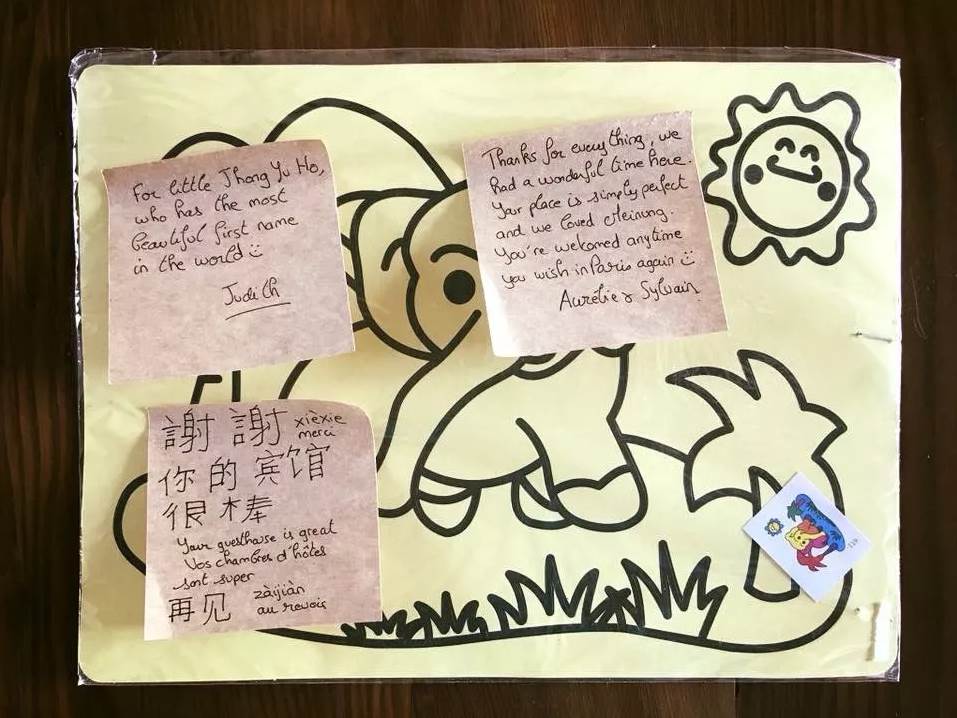 For little Jhong Yu Ho,
who has the most
beautiful first name
in the world
Judith
Thanks for everything, we
had a wonderful time here.
Your place is simply perfect
and we loved Meinung.
You're welcomed anytime
you wish in Paris again
Aurélie & Sylvain
謝謝 xièxie
merci
你的宾馆
很棒
Your guesthouse is great
Vos chambres d'hôtes
sont super
再见 zàijiàn
au revoir